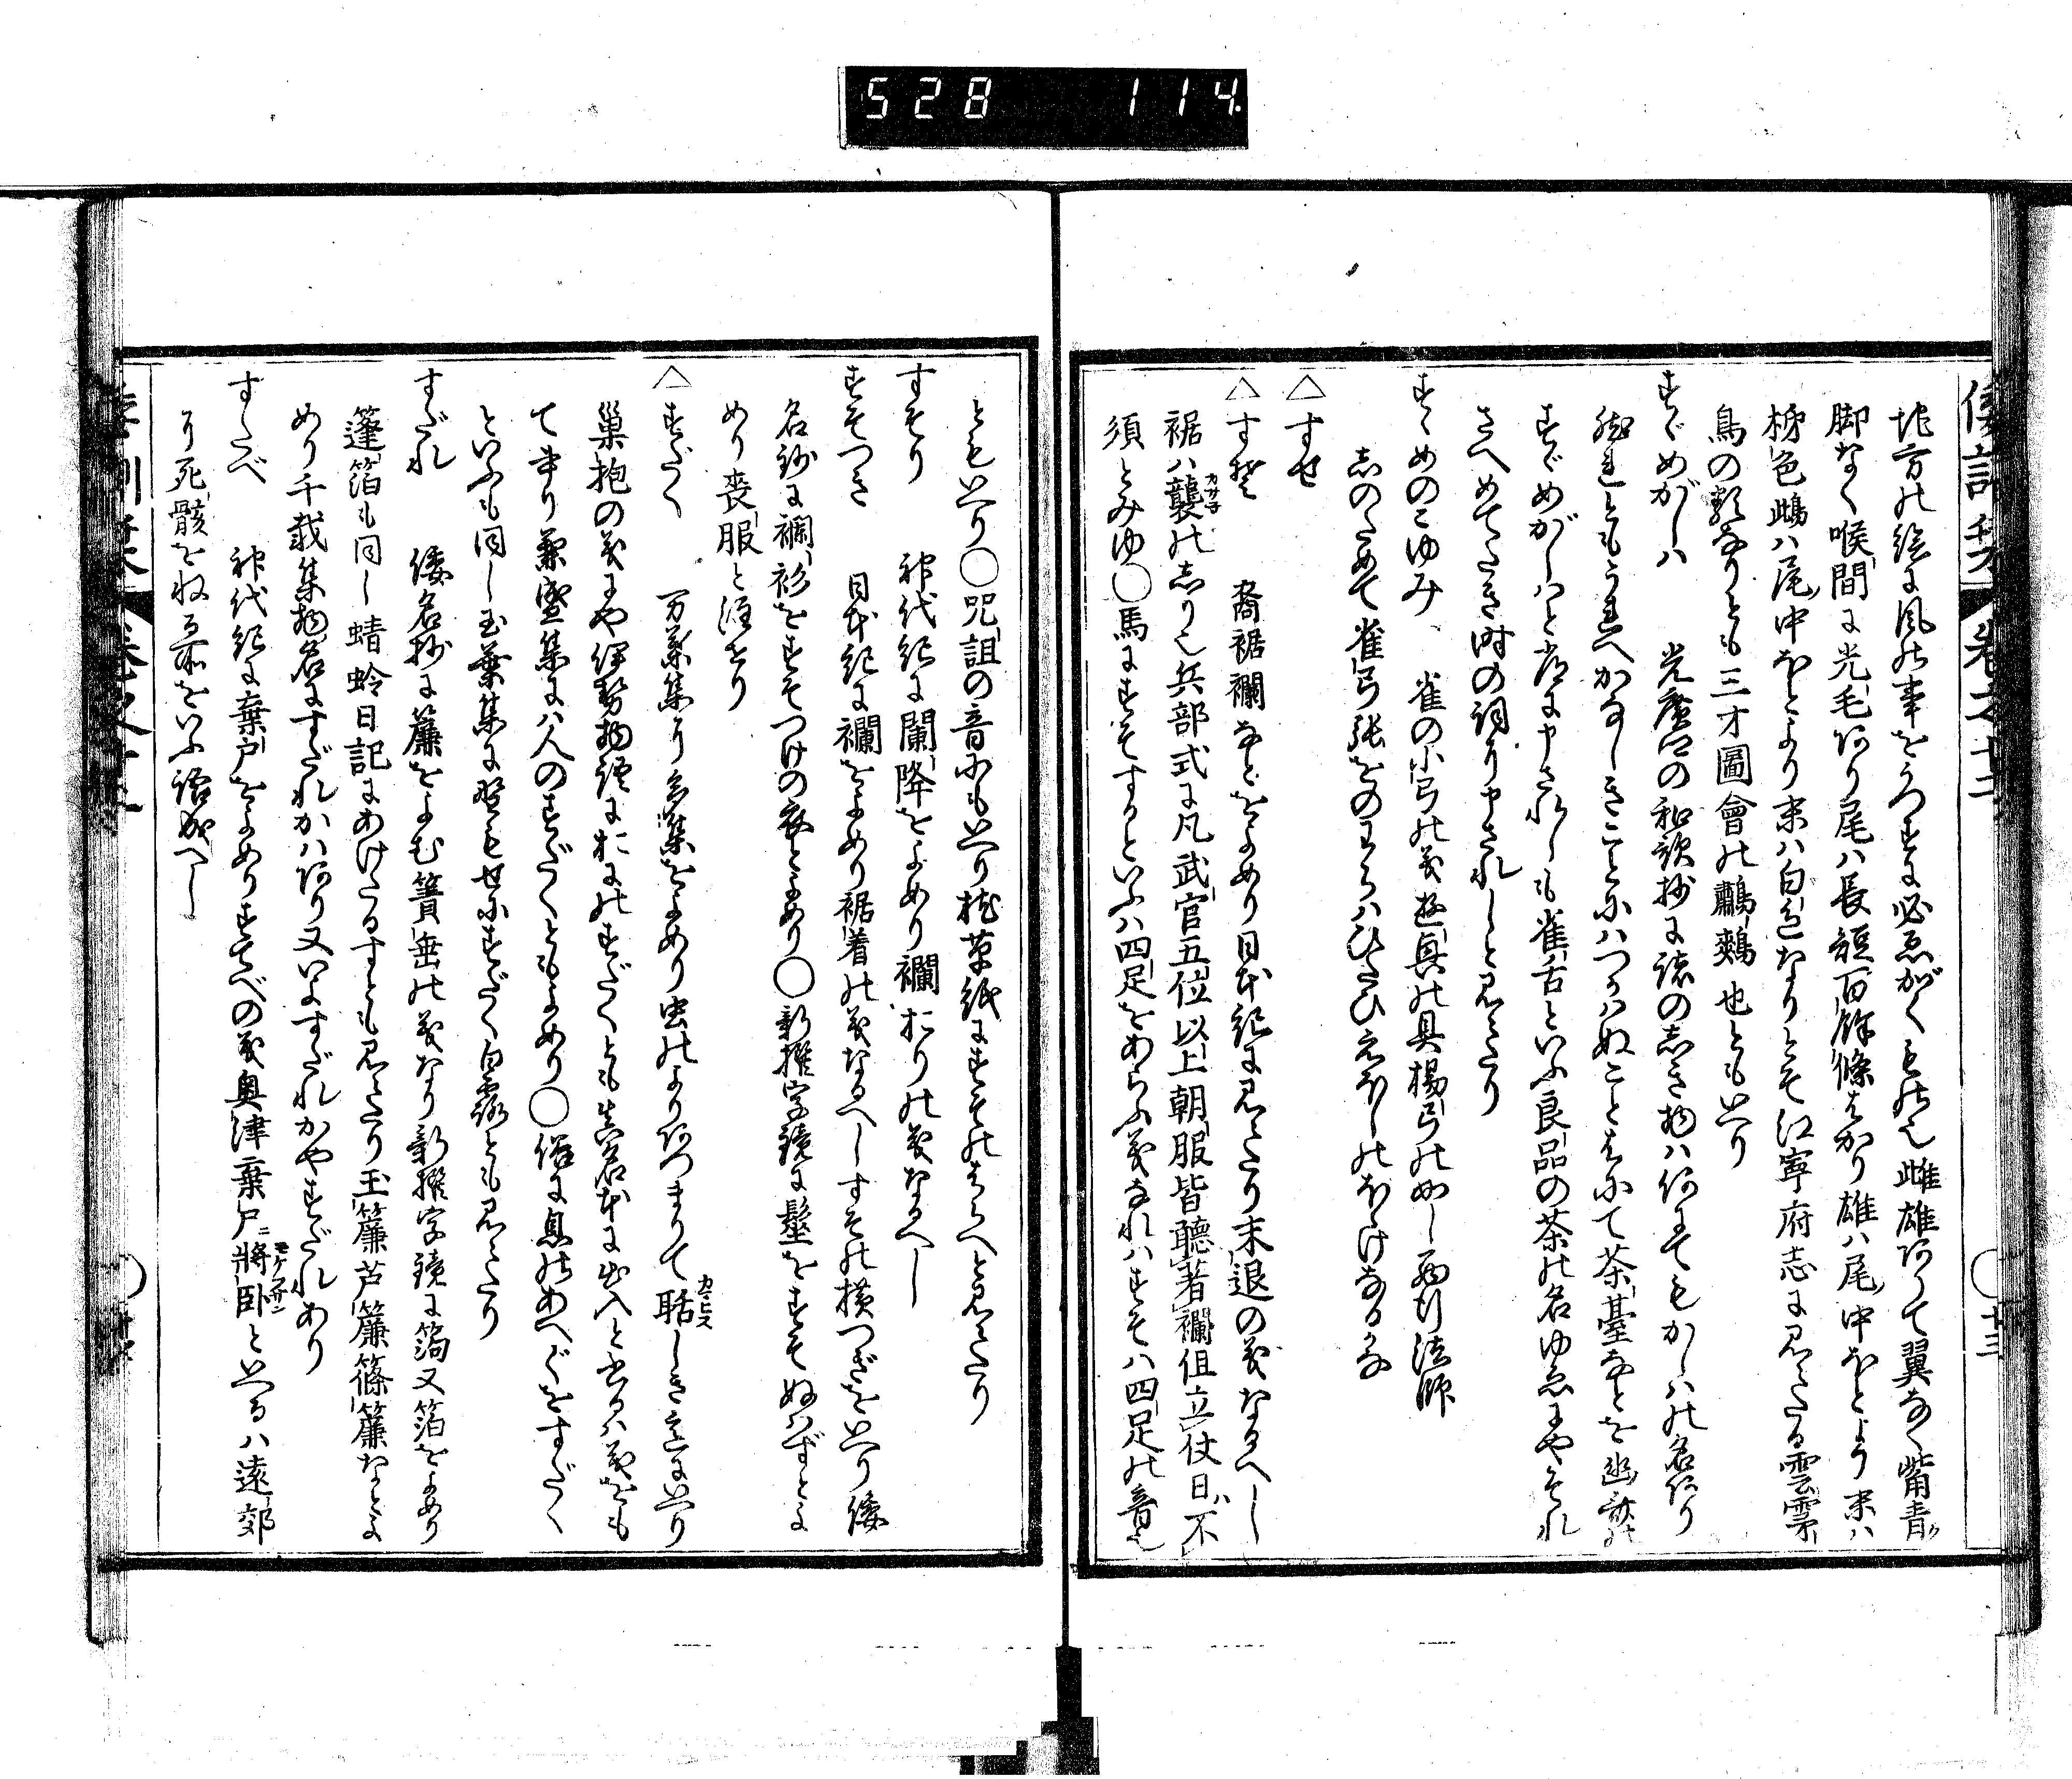 528 114
倭訓栞 卷之十二 ○ 十三
地方の絵に風の事をうつすに必ゑがくもの也雌雄ありて翼なく觜青ク
脚なく喉間に光毛あり尾ハ長短百餘條はかり雄ハ尾ノ中ほとより末ハ
色鴟ハ尾ノ中ほとより末ハ白色なりとそ江寧府志に見えたる雲雾
鳥の類なりとも三才圖會の鸕鷀也ともいへり
すゞめがしハ 光廣公の和歌抄に諸のしき物ハ何にてもかしハの名あり
然れともうるへかなしきことにハつかハぬことはにて茶臺なとを
すゞめがしハと常に申されしも雀舌といふ良品の茶の名ゆゑにやそれ
さへめてたき時の詞に申されしと見えたり
すゝめのこゆみ 雀の小弓の義遊具の具楊弓の如し西行法師
しのためて雀弓張をのわらハひたひゑほしのほしけなるかな
△すせ
△すそ 裔裾襴なとをよめり日本紀に見えたり末退の義なるへし
裾ハ襲の志り也兵部式に凡武官五位以上朝服皆聽著襴但立仗日ハ不
須とみゆ○馬にすそするといふハ四足をあらふ義なれハすそハ四足の音也
ともいへり○咒詛の音にもいへり枕草紙にすそのはらへと見えたり
すそり 神代紀に闌降をよめり襴おりの義なるへし
すそつき 日本紀に襴をよめり裾着の義なるへしすその横つぎをいへり倭
名鈔に襴衫をすそつけの衣とよめり○新撰字鏡に䰂をすそぬハずとよ
めり喪服と注せり
△すだく 万葉集に多集をよめり虫のよりあつまりて聒しき意にいへり
巣抱の義にや伊勢物語におにのすだくとも眞名本に出入と書るハ義をも
て書り兼盛集にハ人のすだくともよめり○俗に息のあへぐをすだく
といふも同し玉葉集に野もせにすだく白露とも見えたり
すだれ 倭名抄に簾をよむ簀垂の義なり新撰字鏡に箔又箔をよめり
篷箔も同し蜻蛉日記にあけたるすとも見えたり玉簾芦簾篠簾なとよ
めり千載集物名にすだれかハあり又いよすだれかやすだれあり
すたべ 神代紀に棄戸をよめりすてべの義奥津棄戸ニ將臥といへるハ遠郊
に死骸をねる所をいふ語成へし